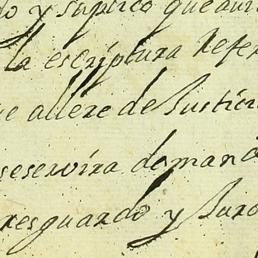 o y suplico que
la escriptura Refer
e allere de Justicia
se servira de man
resguardo y Juro